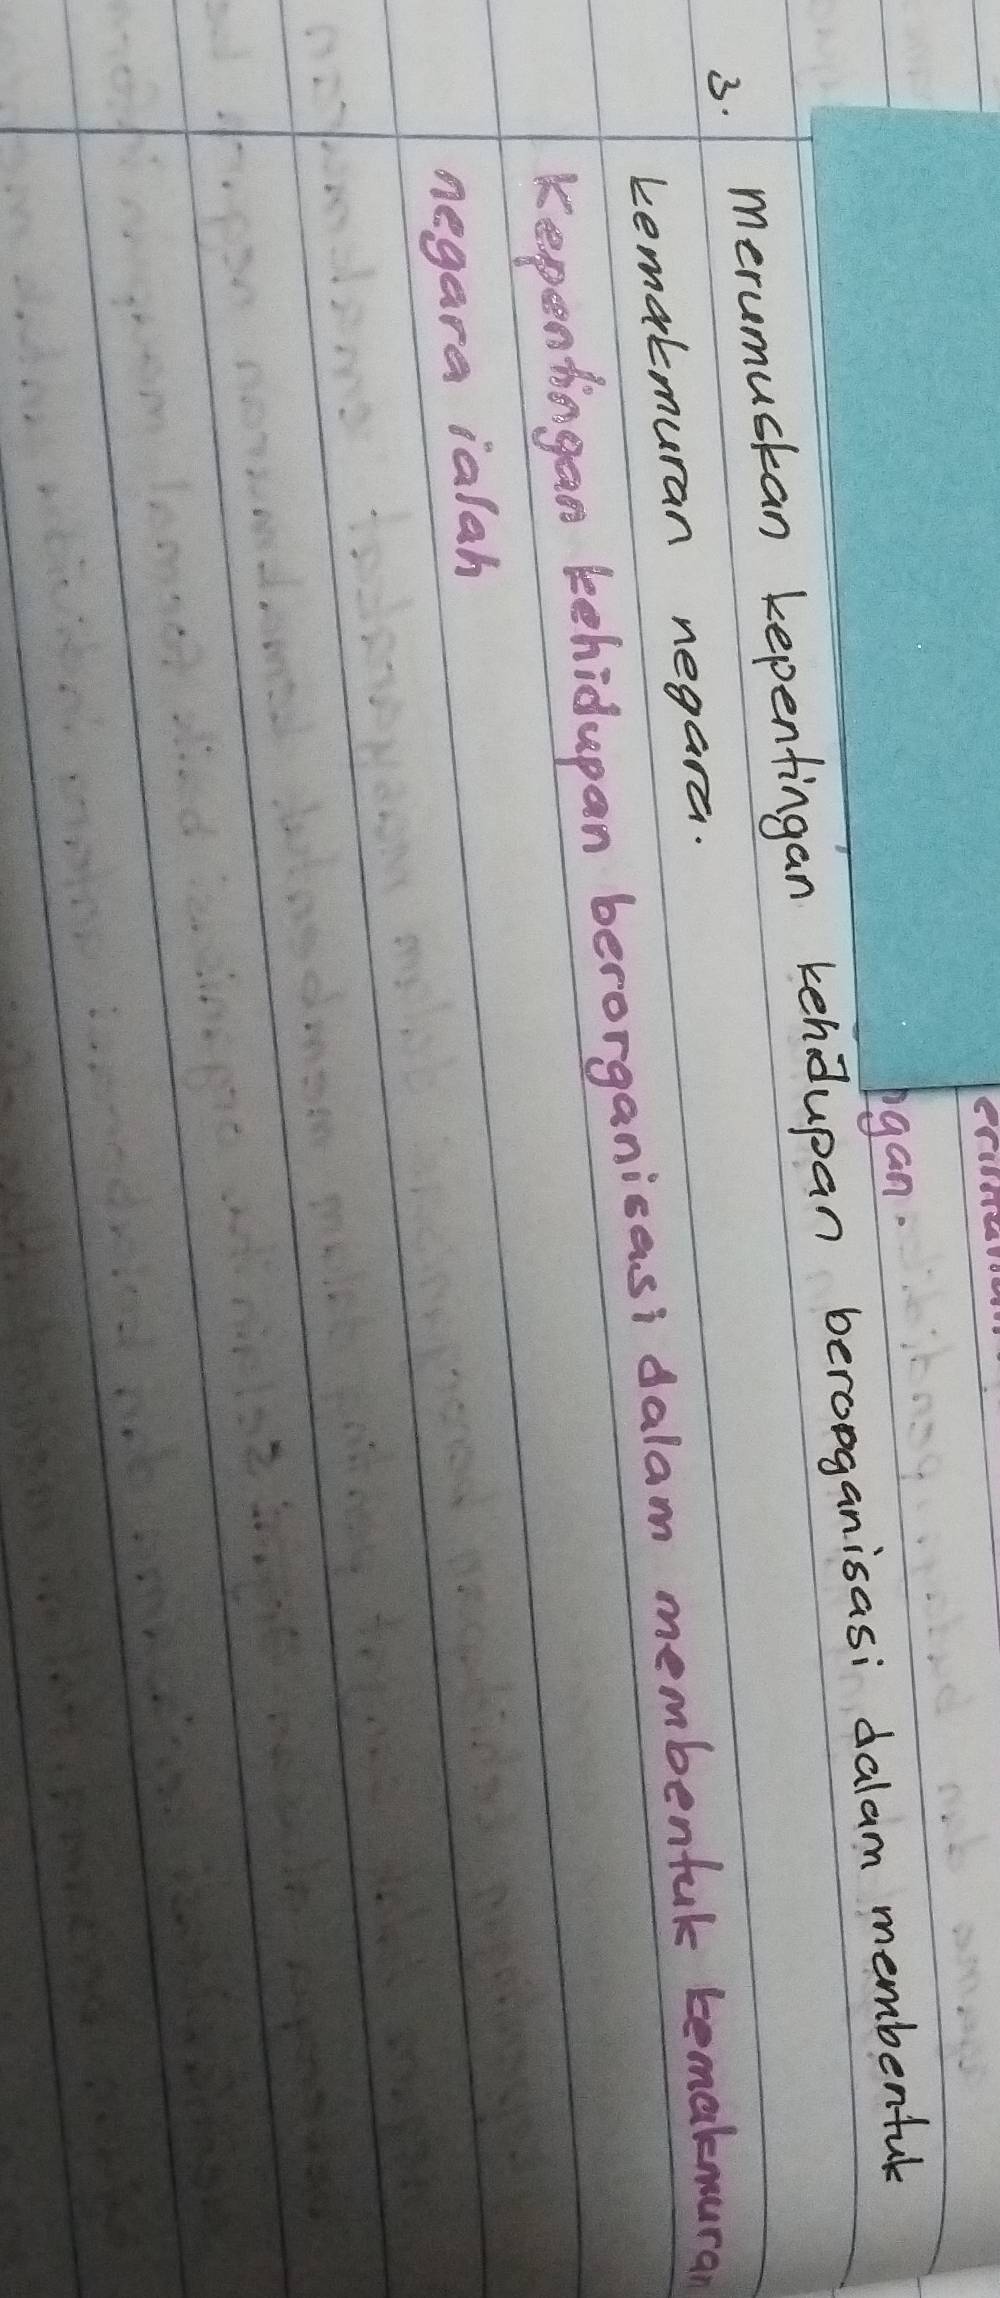 ngan.
3. merumuskan kepentingan kehidupan berorganisasi dalam membentuk
kemakmuran negara.
Kepentingan kehidupan berorganisasi dalam membentuk kemakmuran
negara ialah